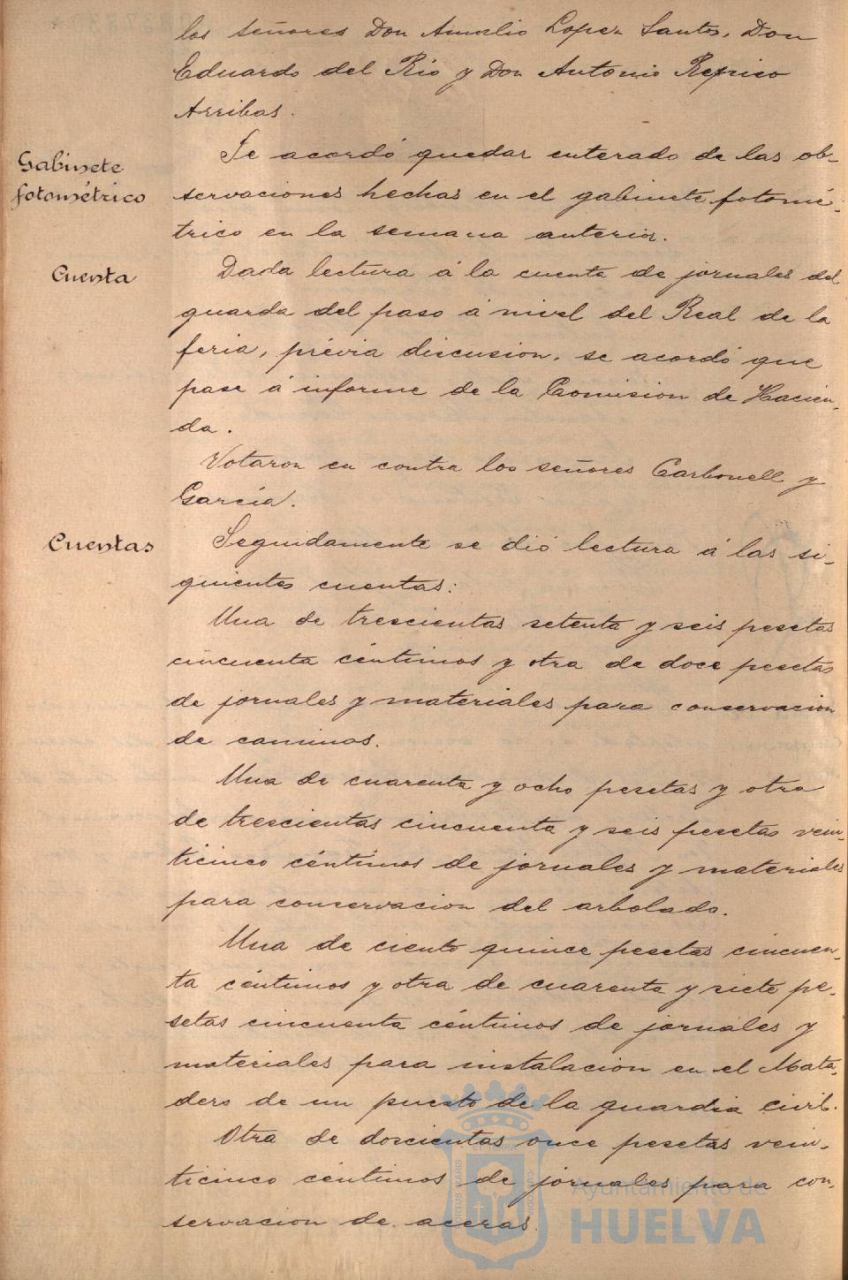 los señores Don Amalio Lopez Santos, Don
Eduardo del Rio y Don Antonio Repiso
Arribas.
Gabinete
fotométrico
Se acordó quedar enterado de las ob-
servaciones hechas en el gabinete fotomé-
trico en la semana anterior.
Cuenta
Dada lectura á la cuenta de jornales del
guarda del paso á nivel del Real de la
feria, prévia discusion, se acordó que
pase á informe de la Comision de Hacien-
da.
Votaron en contra los señores Carbonell y
García.
Cuentas
Seguidamente se dió lectura á las si-
guientes cuentas:
Una de trescientas setenta y seis pesetas
cincuenta céntimos y otra de doce pesetas
de jornales y materiales para conservacion
de caminos.
Una de cuarenta y ocho pesetas y otra
de trescientas cincuenta y seis pesetas vein-
ticinco céntimos de jornales y materiales
para conservacion del arbolado.
Una de ciento quince pesetas cincuen-
ta céntimos y otra de cuarenta y siete pe-
setas cincuenta céntimos de jornales y
materiales para instalacion en el Mata-
dero de un puesto de la guardia civil.
Otra de doscientas once pesetas vein-
ticinco céntimos de jornales para con-
servacion de aceras.
Ayuntamiento de
HUELVA